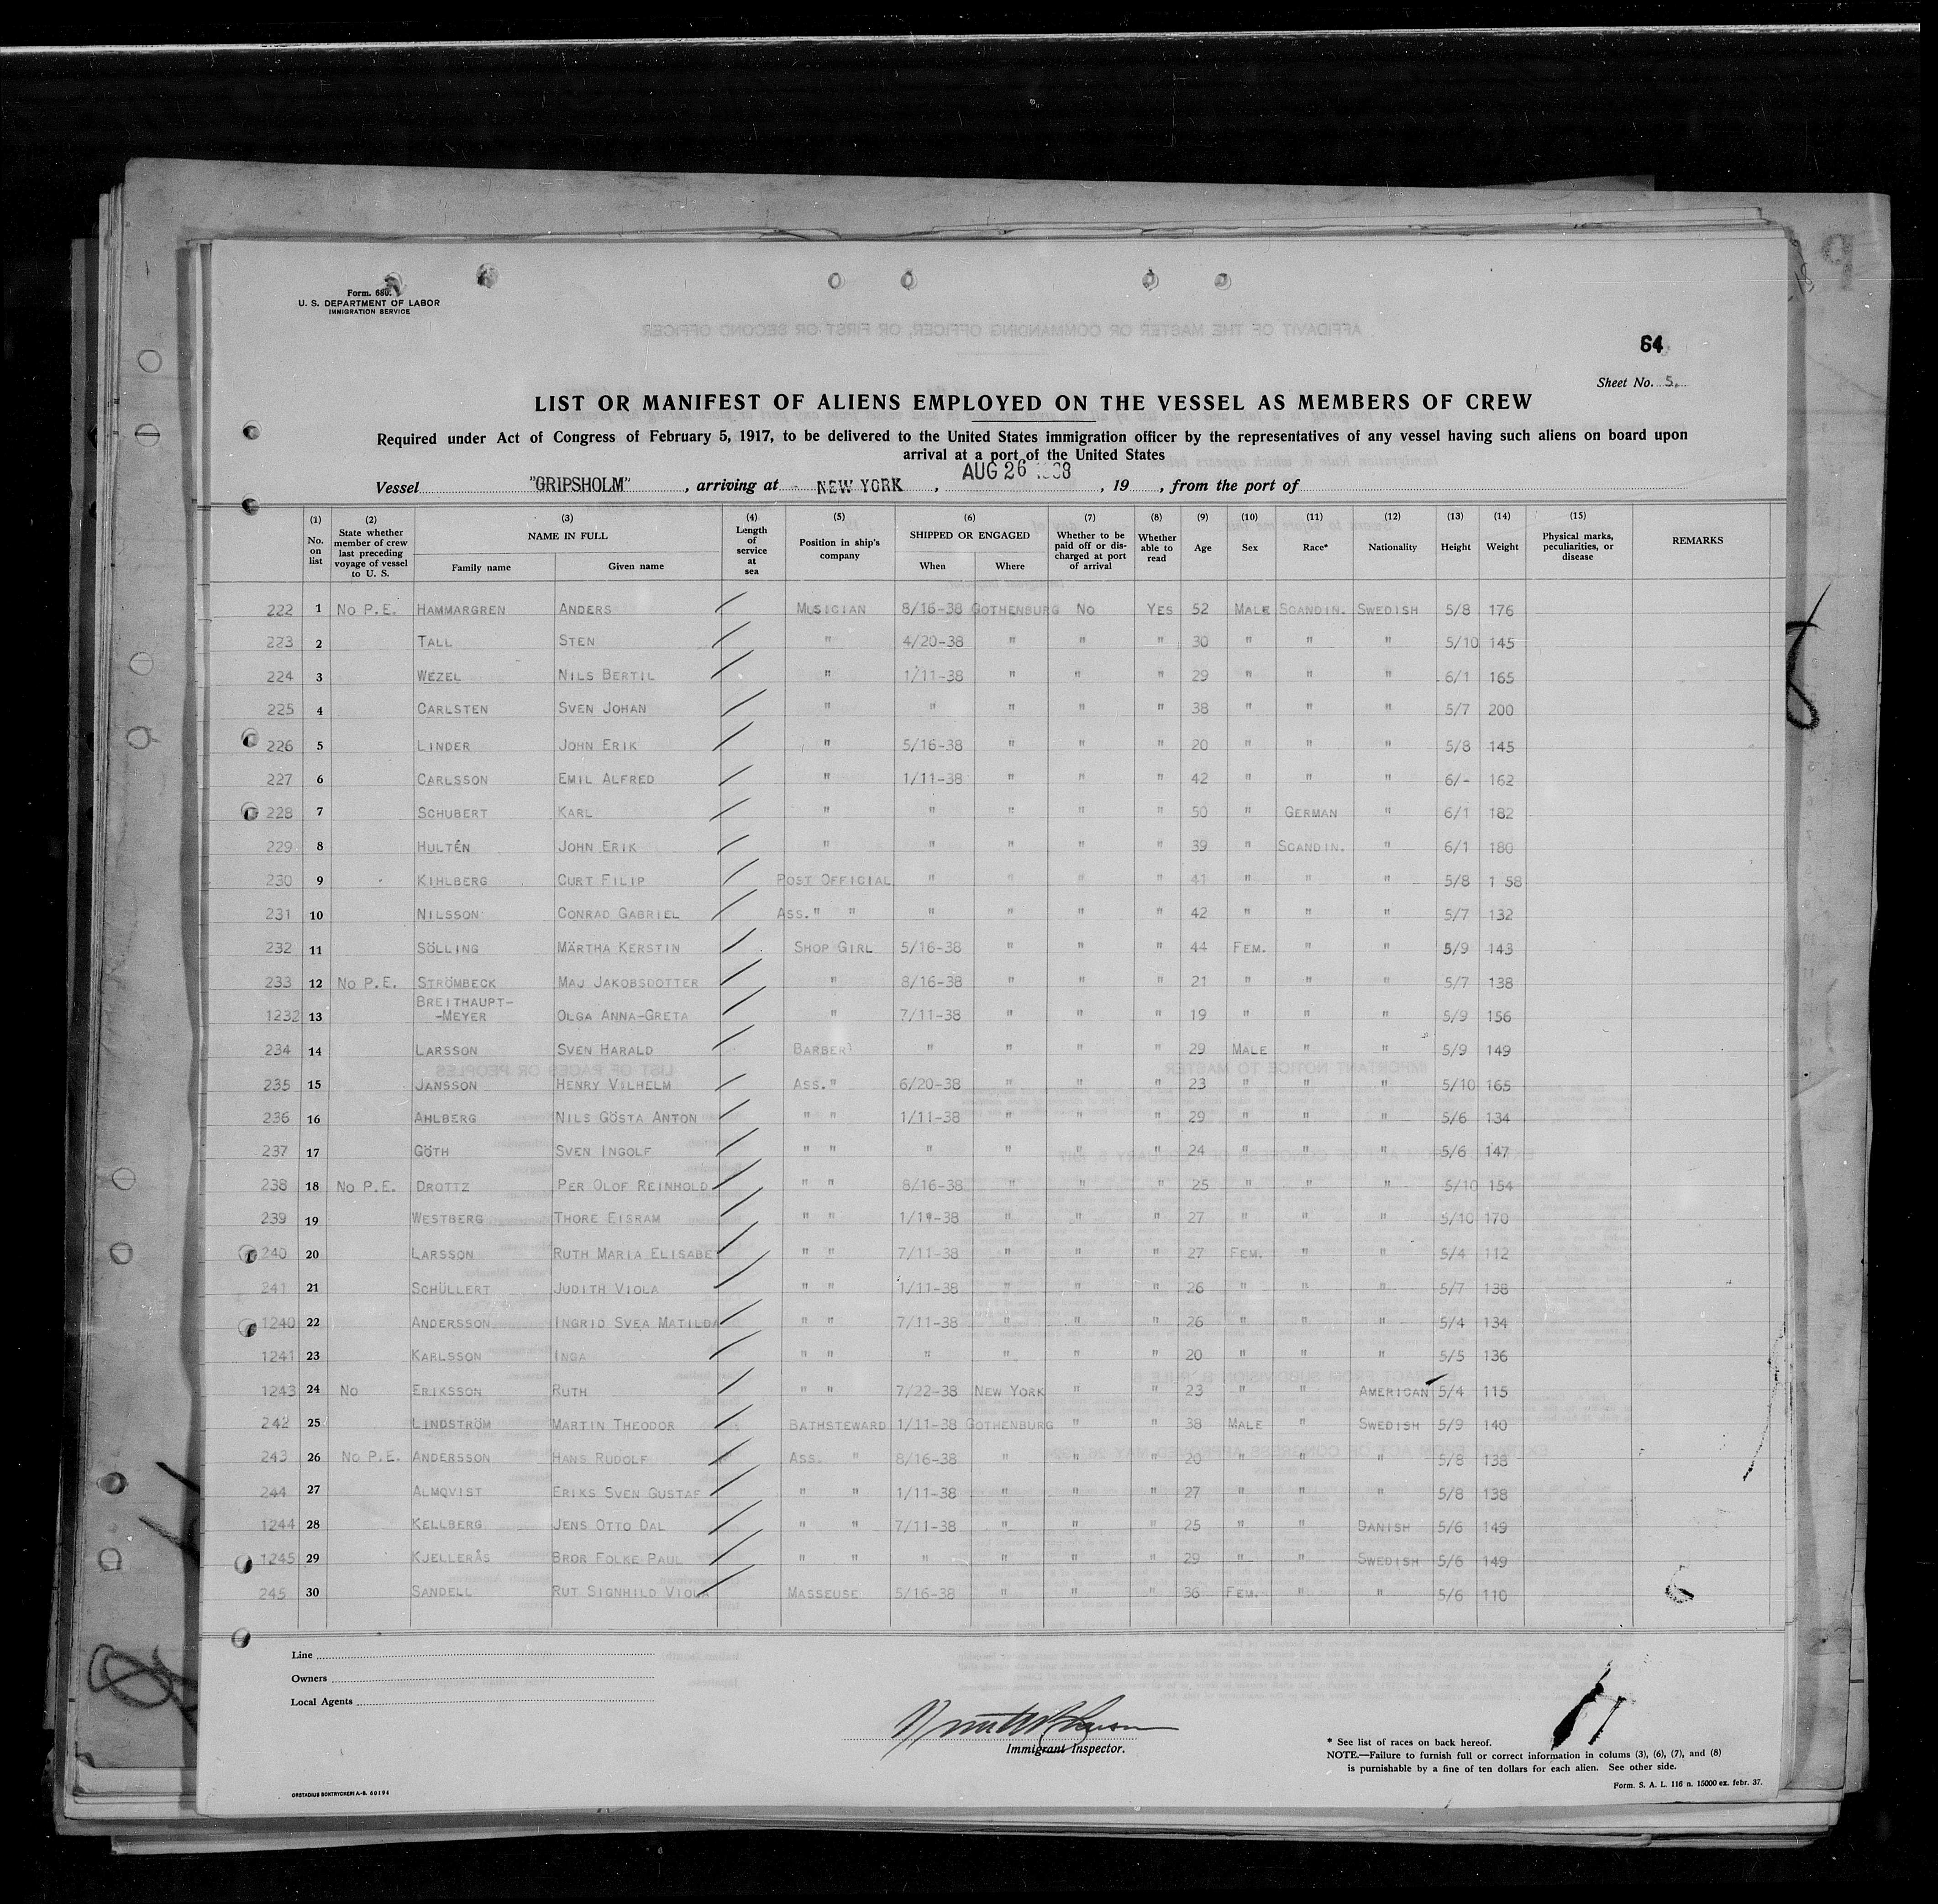 Form. 680.
U. S. DEPARTMENT OF LABOR
IMMIGRATION SERVICE
64
Sheet No. 5.
LIST OR MANIFEST OF ALIENS EMPLOYED ON THE VESSEL AS MEMBERS OF CREW
Required under Act of Congress of February 5, 1917, to be delivered to the United States immigration officer by the representatives of any vessel having such aliens on board upon
arrival at a port of the United States
Vessel "GRIPSHOLM", arriving at - NEW YORK, AUG 26 1938, 19 , from the port of
(1) No. on list (2) State whether member of crew last preceding voyage of vessel to U. S. (3) NAME IN FULL Family name Given name (4) Length of service at sea (5) Position in ship's company (6) SHIPPED OR ENGAGED When Where (7) Whether to be paid off or discharged at port of arrival (8) Whether able to read (9) Age (10) Sex (11) Race* (12) Nationality (13) Height (14) Weight (15) Physical marks, peculiarities, or disease REMARKS
222 1 No P.E. HAMMARGREN ANDERS MUSICIAN 8/16-38 GOTHENBURG No YES 52 MALE SCANDIN. SWEDISH 5/8 176
223 2 TALL STEN " 4/20-38 " " " 30 " " " 5/10 145
224 3 WEZEL NILS BERTIL " 1/11-38 " " " 29 " " " 6/1 165
225 4 CARLSTEN SVEN JOHAN " " " " " 38 " " " 5/7 200
226 5 LINDER JOHN ERIK " 5/16-38 " " " 20 " " " 5/8 145
227 6 CARLSSON EMIL ALFRED " 1/11-38 " " " 42 " " " 6/- 162
228 7 SCHUBERT KARL " " " " " 50 " GERMAN " 6/1 182
229 8 HULTÉN JOHN ERIK " " " " " 39 " SCANDIN. " 6/1 180
230 9 KIHLBERG CURT FILIP POST OFFICIAL " " " " 41 " " " 5/8 1 58
231 10 NILSSON CONRAD GABRIEL ASS. " " " " " " 42 " " " 5/7 132
232 11 SÖLLING MÄRTHA KERSTIN SHOP GIRL 5/16-38 " " " 44 FEM. " " 5/9 143
233 12 No P.E. STRÖMBECK MAJ JAKOBSDOTTER " 8/16-38 " " " 21 " " " 5/7 138
1232 13 BREITHAUPT-
-MEYER OLGA ANNA-GRETA " 7/11-38 " " " 19 " " " 5/9 156
234 14 LARSSON SVEN HARALD BARBER " " " " 29 MALE " " 5/9 149
235 15 JANSSON HENRY VILHELM ASS. " 6/20-38 " " " 23 " " " 5/10 165
236 16 AHLBERG NILS GÖSTA ANTON " " 1/11-38 " " " 29 " " " 5/6 134
237 17 GÖTH SVEN INGOLF " " " " " " 24 " " " 5/6 147
238 18 No P.E. DROTTZ PER OLOF REINHOLD " " 8/16-38 " " " 25 " " " 5/10 154
239 19 WESTBERG THORE EISRAM " " 1/11-38 " " " 27 " " " 5/10 170
240 20 LARSSON RUTH MARIA ELISABET " " 7/11-38 " " " 27 FEM. " " 5/4 112
241 21 SCHÜLLERT JUDITH VIOLA " " 1/11-38 " " " 26 " " " 5/7 138
1240 22 ANDERSSON INGRID SVEA MATILDA " " 7/11-38 " " " 26 " " " 5/4 134
1241 23 KARLSSON INGA " " " " " " 20 " " " 5/5 136
1243 24 No ERIKSSON RUTH " " 7/22-38 NEW YORK " " 23 " " AMERICAN 5/4 115
242 25 LINDSTRÖM MARTIN THEODOR BATHSTEWARD 1/11-38 GOTHENBURG " " 38 MALE " SWEDISH 5/9 140
243 26 No P.E. ANDERSSON HANS RUDOLF ASS. " 8/16-38 " " " 20 " " " 5/8 138
244 27 ALMQVIST ERIKS SVEN GUSTAF " " 1/11-38 " " " 27 " " " 5/8 138
1244 28 KELLBERG JENS OTTO DAL " " 7/11-38 " " " 25 " " DANISH 5/6 149
1245 29 KJELLERÅS BROR FOLKE PAUL " " " " " " 29 " " SWEDISH 5/6 149
245 30 SANDELL RUT SIGNHILD VIOLA MASSEUSE 5/16-38 " " " 36 FEM. " " 5/6 110
Line
Owners
Local Agents
Immigrant Inspector.
* See list of races on back hereof.
NOTE.—Failure to furnish full or correct information in colums (3), (6), (7), and (8)
is punishable by a fine of ten dollars for each alien. See other side.
Form. S. A. L. 116 n. 15000 ex. febr. 37.
ORSTADIUS BOKTRYCKERI A.-B. 60194